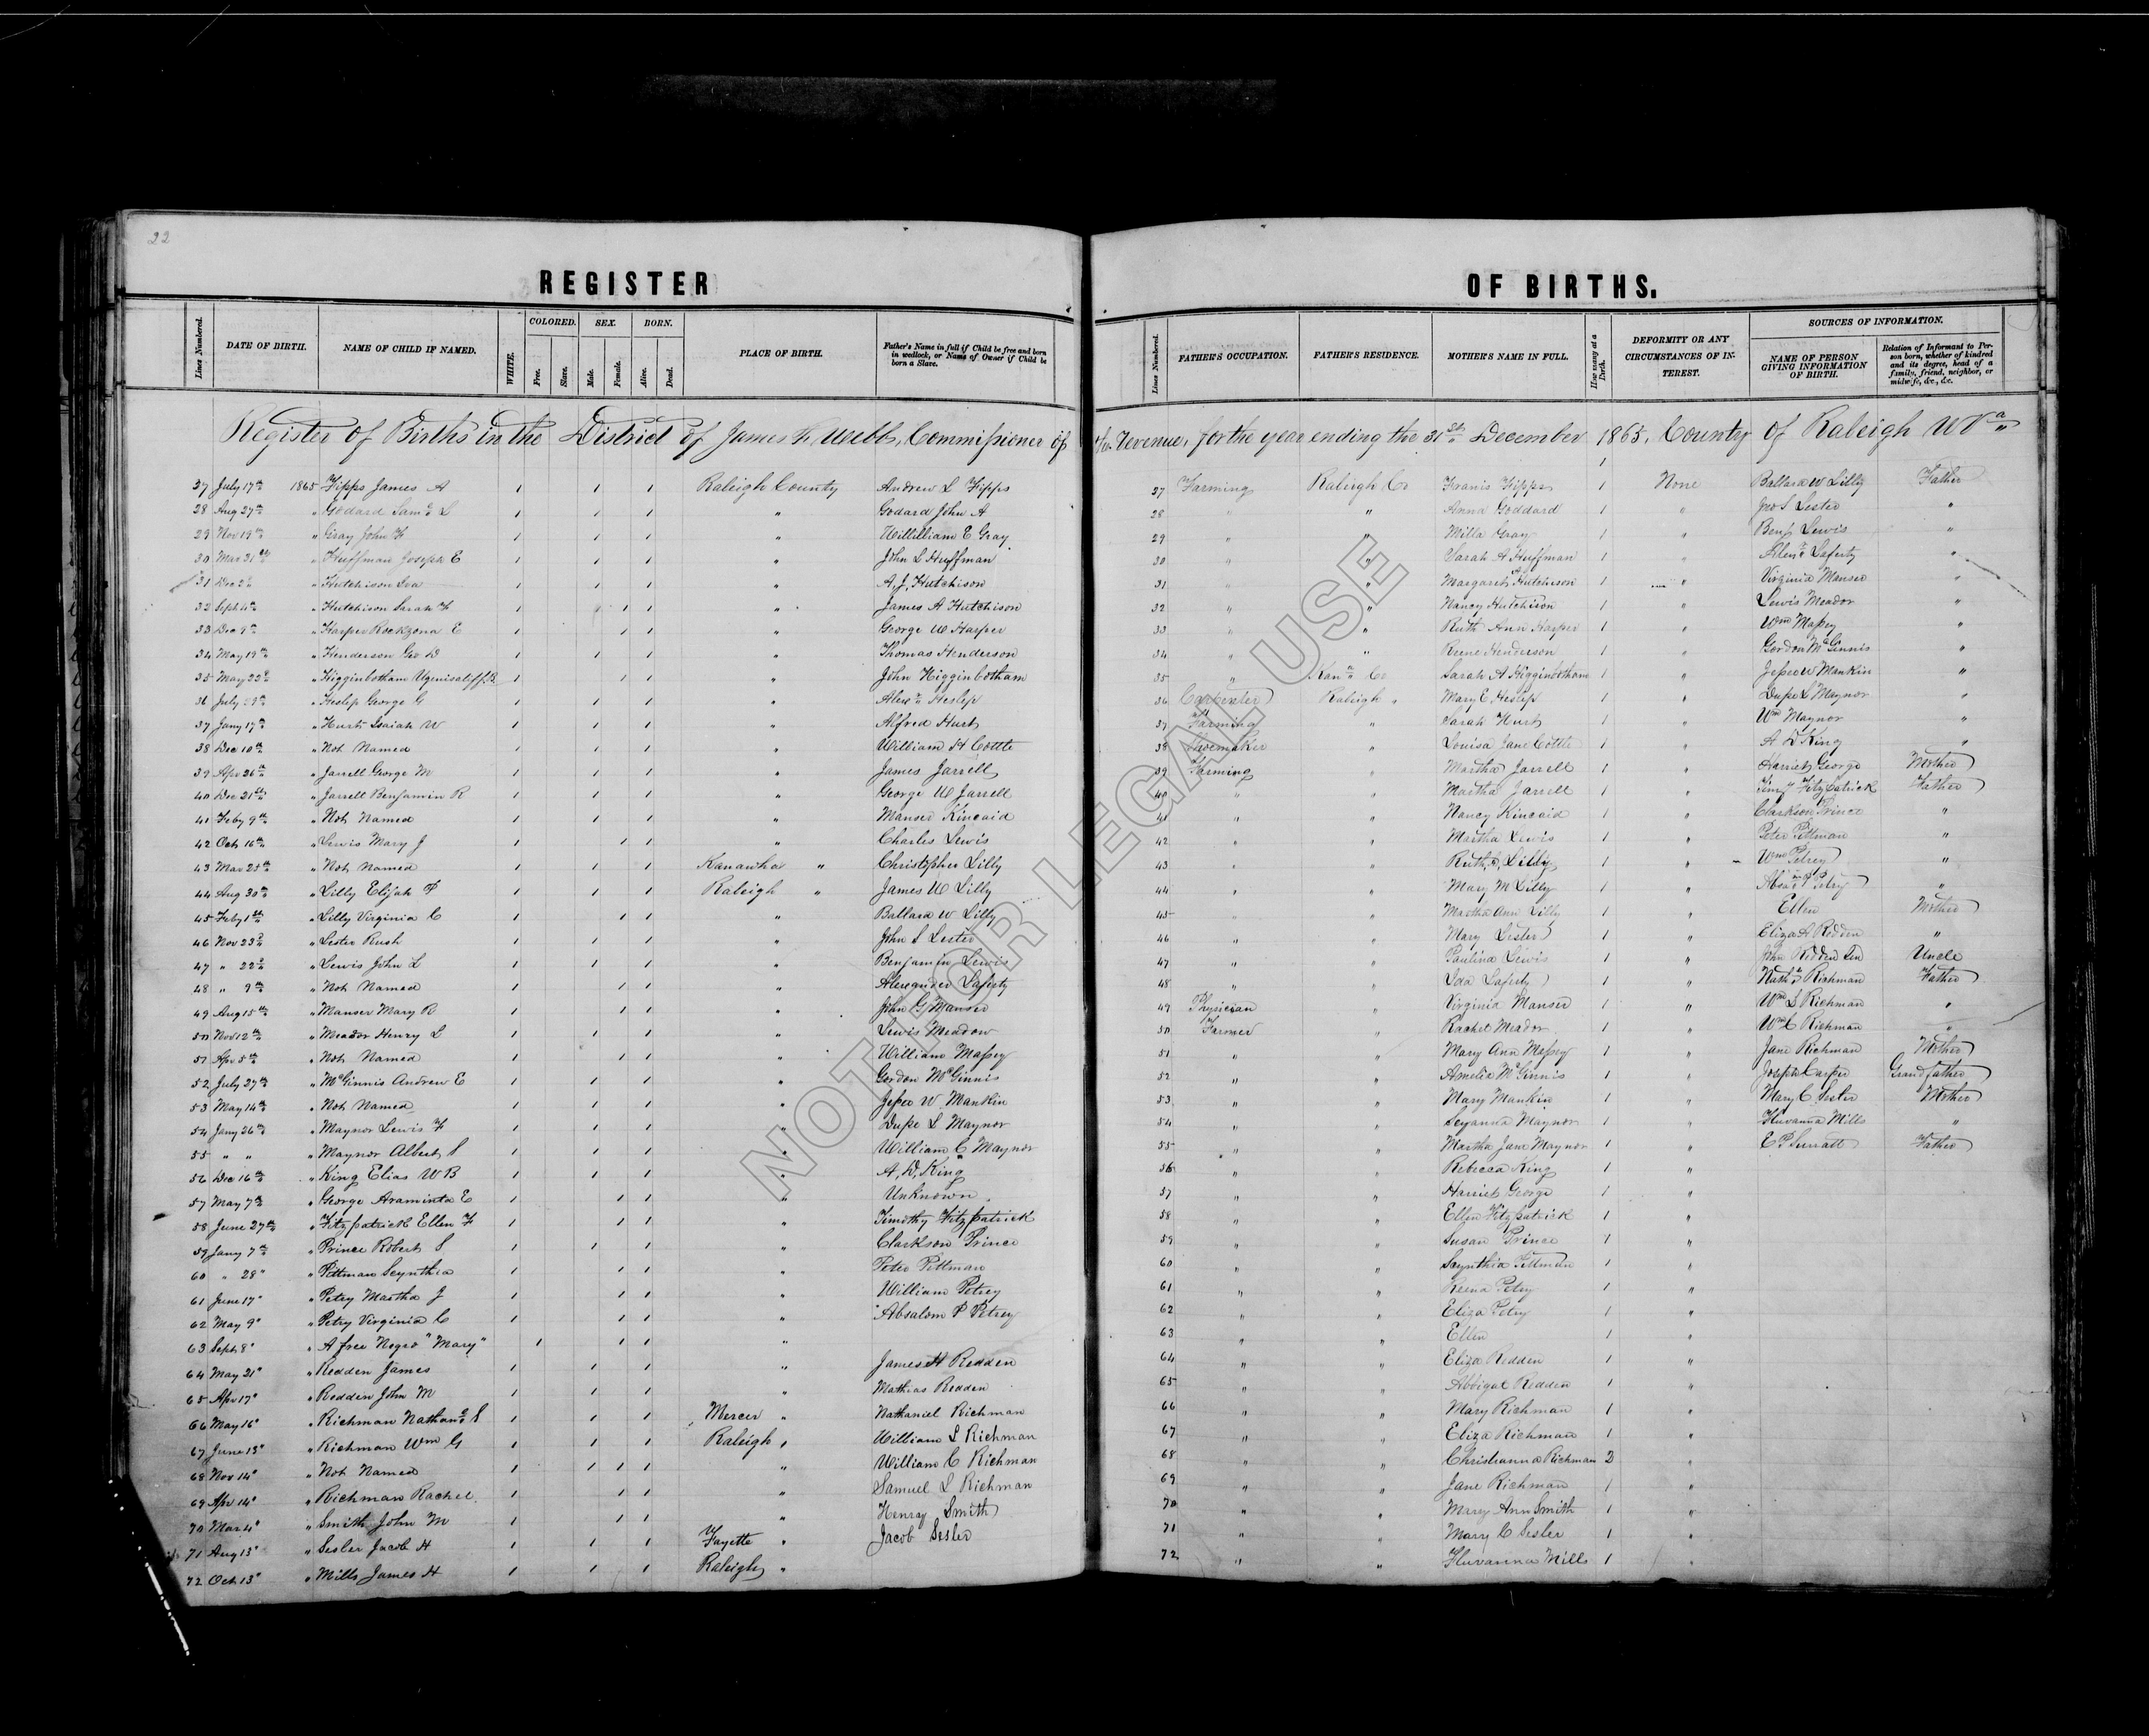 22
REGISTER OF BIRTHS.
Lines Numbered. DATE OF BIRTH. NAME OF CHILD IF NAMED. WHITE. COLORED. Free. Slave. SEX. Male. Female. BORN. Alive. Dead. PLACE OF BIRTH. Father's Name in full if Child be free and born in wedlock, or Name of Owner if Child be born a Slave.
Lines Numbered. FATHER'S OCCUPATION. FATHER'S RESIDENCE. MOTHER'S NAME IN FULL. How many at a Birth. DEFORMITY OR ANY CIRCUMSTANCES OF INTEREST. SOURCES OF INFORMATION. NAME OF PERSON GIVING INFORMATION OF BIRTH. Relation of Informant to Person born, whether of kindred and its degree, head of a family, friend, neighbor, or midwife, &c., &c.
Register of Births in the District of James F. Webb, Commissioner of the Revenue, for the year ending the 31st December 1865, County of Raleigh W Va
27 July 17th 1865 Fipps James A 1 1 1 Raleigh County Andrew L Fipps 27 Farming Raleigh Co Franis Fipps 1 None Ballard W Lilly Father
28 Aug 27th " Godard Saml L 1 1 1 " Godard John A 28 " " Anna Goddard 1 " Jno S Lester "
29 Nov 19th " Gray John F 1 1 1 " Willilliam E Gray 29 " " Milla Gray 1 " Benj Lewis "
30 Mar 31st " Huffman Joseph E 1 1 1 " John L Huffman 30 " " Sarah A Huffman 1 " Laferty "
31 Dec 2d " Hutchison 1 1 1 " A. J. Hutchison 31 " " Margaret Hutchison 1 " Virginia Manser "
32 Sept 4th " Hutchison Sarah F 1 1 1 " James A Hutchison 32 " " Nancy Hutchison 1 " Lewis Meador "
33 Dec 9th " Harper Rockzona E 1 1 1 " George W Harper 33 " " Ruth Ann Harper 1 " Wm Massey "
34 May 19th " Henderson Geo D 1 1 1 " Thomas Henderson 34 " " Rune Henderson 1 " Gordon McGinnis "
35 May 22d " Higginbotham 1 1 1 " John Higginbotham 35 " Kana Co Sarah A Higginbotham 1 " Jesse W Mankin "
36 July " Heslip George G 1 1 1 " Alexr Heslip 36 Carpenter Raleigh " Mary E Heslip 1 " Dupe L Maynor "
37 Jany 17th " Hurt Isaiah W 1 1 1 " Alfred Hurt 37 Farming " Sarah Hurt 1 " Wm Maynor "
38 Dec 10th " Not Named 1 1 1 " William H Cottle 38 Shoemaker " Louisa Jane Cottle 1 " A D King "
39 Apr 26th " Jarrell George M 1 1 1 " James Jarrell 39 Farming " Martha Jarrell 1 " Harriet George Mother
40 Dec 21st " Jarrell Benjamin R 1 1 1 " George W Jarrell 40 " " Martha Jarrell 1 " Fitzpatrick Father
41 Feby 9th " Not Named 1 1 1 " Manser Kincaid 41 " " Nancy Kincaid 1 " Clarkson Prince "
42 Oct 16th " Lewis Mary J 1 1 1 " Charles Lewis 42 " " Martha Lewis 1 " Peter Pittman "
43 Mar 25th " Not Named 1 1 1 Kanawha " Christopher Lilly 43 " " Ruth Lilly 1 " Wm Petrey "
44 Aug 30th " Lilly Elijah P 1 1 1 Raleigh " James W Lilly 44 " " Mary M Lilly 1 " Absa P Petry "
45 Feby 1st " Lilly Virginia C 1 1 1 " Ballard W Lilly 45 " " Martha Ann Lilly 1 " Ellen Mother
46 Nov 23d " Lester Rush 1 1 1 " John S Lester 46 " " Mary Lester 1 " Eliza A Redden "
47 " 22d " Lewis John L 1 1 1 " Benjamin Lewis 47 " " Paulina Lewis 1 " John Redden Sen Uncle
48 " 9th " Not Named 1 1 1 " Alexander Laferty 48 " " Ida Laferty 1 " Nathl Richman Father
49 Aug 15th " Manser Mary R 1 1 1 " John G Manser 49 Physician " Virginia Manser 1 " Wm L Richman "
50 Nov 12th " Meador Henry L 1 1 1 " Lewis Meadow 50 Farmer " Rachel Meador 1 " Wm C Richman "
51 Apr 5th " Not Named 1 1 1 " William Massey 51 " " Mary Ann Massey 1 " Jane Richman Mother
52 July 27th " McGinnis Andrew E 1 1 1 " Gordon McGinnis 52 " " Amelia McGinnis 1 " Joseph Carper Grandfather
53 May 14th " Not Named 1 1 1 " Jesse W Mankin 53 " " Mary Mankin 1 " Mary C Sesler Mother
54 Jany 26th " Maynor Lewis F 1 1 1 " Dupe L Maynor 54 " " Seyanna Maynor 1 " Fluvanna Mills "
55 " " " Maynor Albert S 1 1 1 " William C Maynor 55 " " Martha Jane Maynor 1 " E P Surratt Father
56 Dec 16th " King Elias W B 1 1 1 " A. D. King 56 " " Rebecca King 1 "
57 May 7th " George Araminta E 1 1 1 " Unknown 57 " " Harriet George 1 "
58 June 27th " Fitzpatrick Ellen F 1 1 1 " Timothy Fitzpatrick 58 " " Ellen Fitzpatrick 1 "
59 Jany 7th " Prince Robert S 1 1 1 " Clarkson Prince 59 " " Susan Prince 1 "
60 " 28 " " Pittman Scynthia 1 1 1 " Peter Pittman 60 " " Scynthia Pittman 1 "
61 June 17" " Petry Martha J 1 1 1 " William Petrey 61 " " Reena Petry 1 "
62 May 9" " Petry Virginia C 1 1 1 " Absalom P Petrey 62 " " Eliza Petry 1 "
63 Sept 8" " A free Negro "Mary" 1 1 1 " 63 " " Ellen 1 "
64 May 21" " Redden James 1 1 1 " James H Redden 64 " " Eliza Redden 1 "
65 Apr 17" " Redden John M 1 1 1 " Mathias Redden 65 " " Abbigal Redden 1 "
66 May 16" " Richman Nathanl S 1 1 1 Mercer " Nathaniel Richman 66 " " Mary Richman 1 "
67 June 13" " Richman Wm G 1 1 1 Raleigh " William L Richman 67 " " Eliza Richman 1 "
68 Nov 14" " Not Named 1 1 1 1 " William C Richman 68 " " Christianna Richman 2 "
69 Apr 14" " Richman Rachel 1 1 1 " Samuel L Richman 69 " " Jane Richman 1 "
70 Mar 4" " Smith John M 1 1 1 " Henry Smith 70 " " Mary Ann Smith 1 "
71 Aug 13" " Sesler Jacob H 1 1 1 Fayette " Jacob Sesler 71 " " Mary C Sesler 1 "
72 Oct 13" " Mills James H 1 1 1 Raleigh " 72 " " Fluvanna Mills 1 "
NOT FOR LEGAL USE